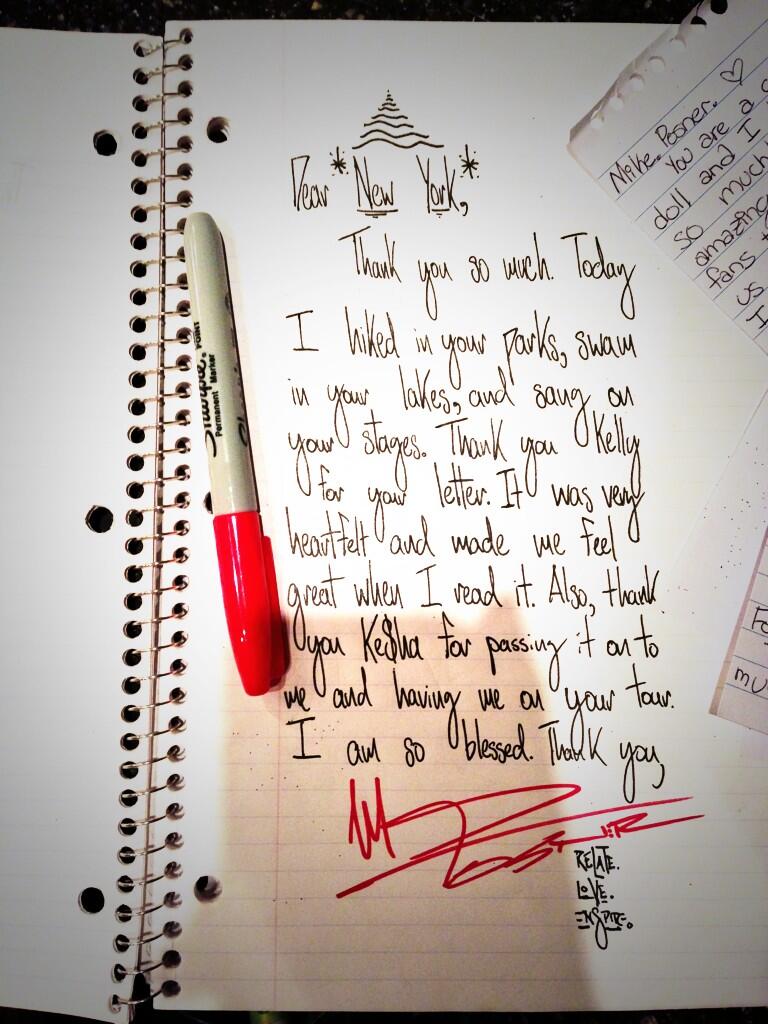 Dear *New York,*
Thank you so much. Today
I hiked in your parks, swam
in your lakes, and sang on
your stages. Thank you Kelly
for your letter. It was very
heartfelt and made me feel
great when I read it. Also, thank
you Ke$ha for passing it on to
me and having me on your tour.
I am so blessed. Thank you,
RELATE.
LOVE.
INSPIRE.
Sharpie.
Permanent Marker
POINT
Mike Posner. ♡
You are a
doll and I
so much
amazing
fans
us
I
mu